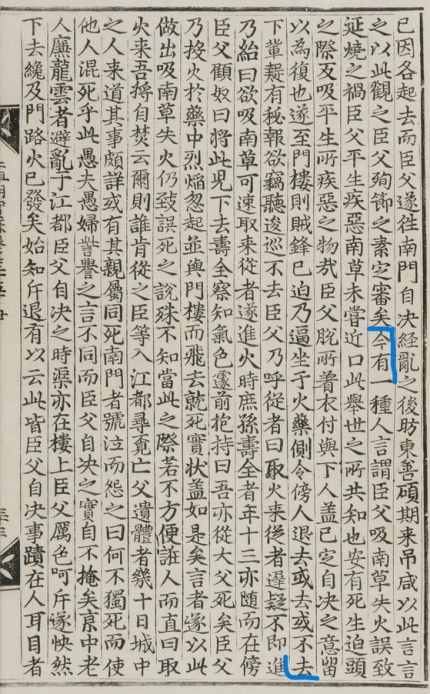 已因各起去而臣父遂徃南門自決經亂之後昉東善碩期来吊咸以此言言
之以此觀之臣父殉節之素㝎審矣今有一種人言謂臣父吸南草失火誤致
延燒之禍臣父平生疾惡南草未嘗近口此舉世之所共知也安有死生迫頭
之際反吸平生所疾惡之物哉臣父脫所着衣付與下人盖已㝎自決之意留
以為復也遂至門樓則賊鋒已迫乃逼坐于火藥側令傍人退去或去或不去
下輩疑有秘報欲竊聽逡巡不去臣父乃呼從者曰取火来從者遲疑不即進
乃紿曰欲吸南草可速取来從者遂進火時庶孫壽全者年十三亦随而在傍
臣父顧奴曰將此児下去壽全察知氣色遽前抱持曰吾亦從大父死矣臣父
乃投火於藥中烈焰忽起並與門樓而飛去就死實状盖如是矣言者遂以此
做出吸南草失火仍致誤死之說殊不知當此之際若不方便誑人而直曰取
火来吾將自焚云爾則誰肯從之臣等入江都尋覓亡父遺體者㡬十日城中
之人来道其事頗詳或有其親屬同死南門者號泣而怨之曰何不獨死而使
他人混死乎此愚夫愚婦訾譽之言不同而臣父自決之實自不掩矣京中老
人龐龍雲者避亂于江都臣父自決之時渠亦在樓上臣父厲色呵斥遂怏然
下去纔及門路火已發矣始知斤退有以云此皆臣父自決事蹟在人耳目者